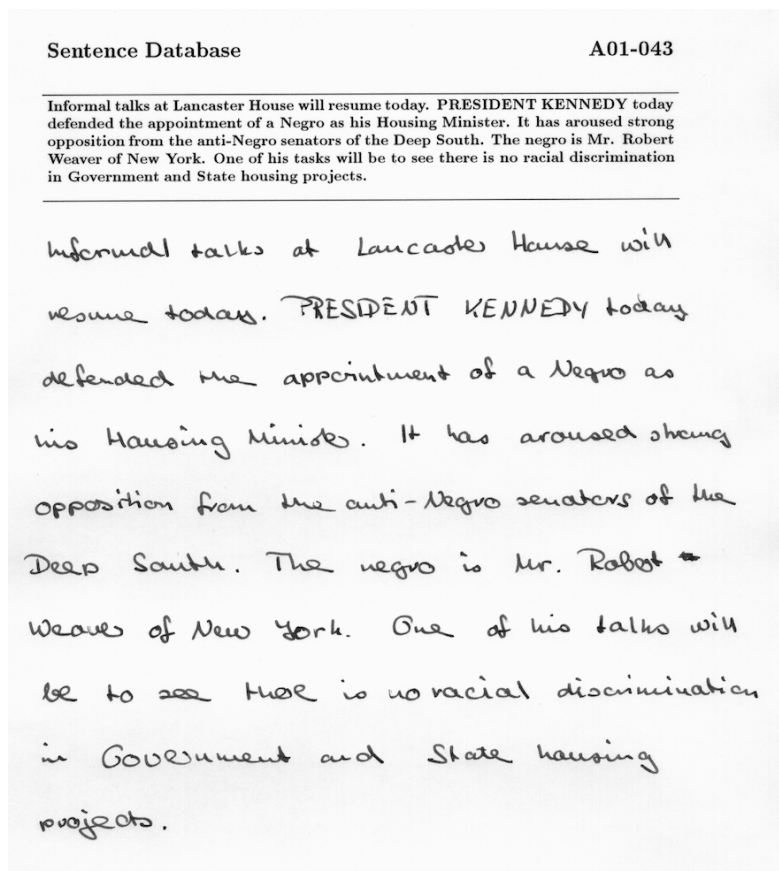 Sentence Database A01-043
Informal talks at Lancaster House will resume today. PRESIDENT KENNEDY today
defended the appointment of a Negro as his Housing Minister. It has aroused strong
opposition from the anti-Negro senators of the Deep South. The negro is Mr. Robert
Weaver of New York. One of his tasks will be to see there is no racial discrimination
in Government and State housing projects.
Informal talks at Lancaster House will
resume today. PRESIDENT KENNEDY today
defended the appointment of a Negro as
his Housing Minister. It has aroused strong
opposition from the anti-Negro senators of the
Deep South. The negro is Mr. Robert
Weaver of New York. One of his talks will
be to see there is no racial discrimination
in Government and State housing
projects.